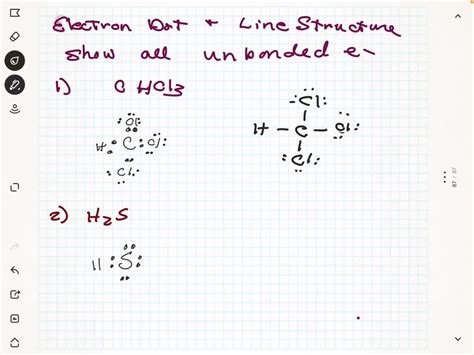 Electron Dot + Line Structure
Show all unbonded e-
1) CHCl3
:Cl:
H:C:Cl:
:Cl:
:Cl:
H - C - Cl:
:Cl:
2) H2S
H:S:
87 / 87